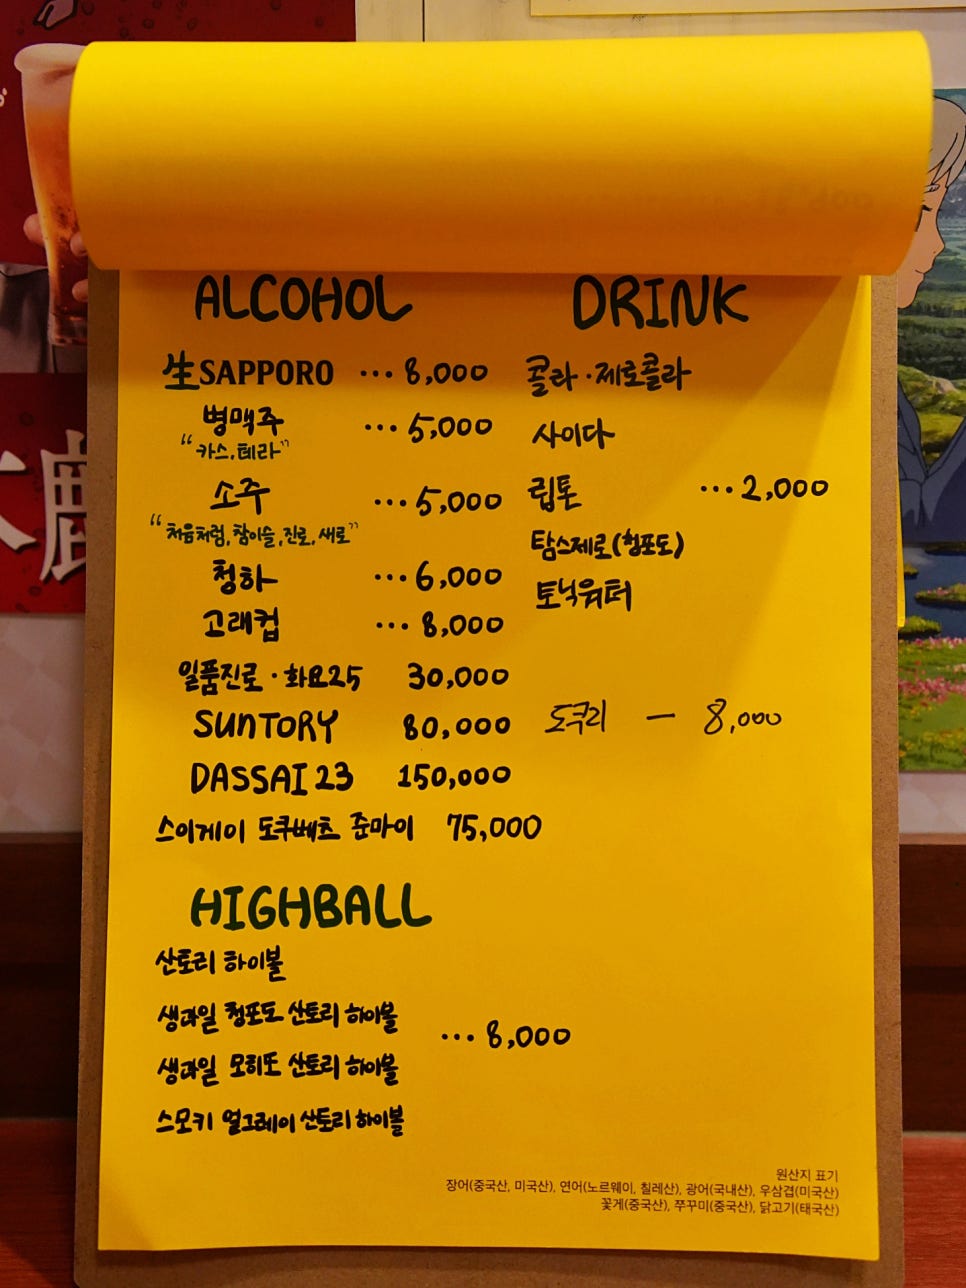 ALCOHOL
生SAPPORO ... 8,000
병맥주 ... 5,000
"카스, 테라"
소주 ... 5,000
"처음처럼, 참이슬, 진로, 새로"
청하 ... 6,000
고래컵 ... 8,000
일품진로 · 화요25 30,000
SUNTORY 80,000
DASSAI 23 150,000
스이게이 도쿠베츠 준마이 75,000
DRINK
콜라 · 제로콜라
사이다
립톤 ... 2,000
탐스제로(청포도)
토닉워터
도쿠리 — 8,000
HIGHBALL
산토리 하이볼
생과일 청포도 산토리 하이볼
생과일 모히또 산토리 하이볼
스모키 얼그레이 산토리 하이볼
... 8,000
원산지 표기
장어(중국산, 미국산), 연어(노르웨이, 칠레산), 광어(국내산), 우삼겹(미국산)
꽃게(중국산), 쭈꾸미(중국산), 닭고기(태국산)